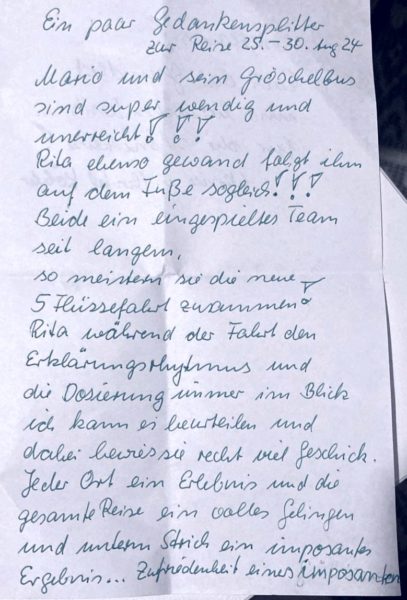 Ein paar Gedankensplitter
zur Reise 25.–30. Aug 24
Mario und sein Gröschelbus
sind super wendig und
unerreicht!!!
Rita ebenso gewand folgt ihm
auf dem Fuße sogleich!!!
Beide ein eingespieltes Team
seit langem,
so meistern sie die neue
5 Flüssefahrt zusammen!
Rita während der Fahrt den
Erklärungsrhythmus und
die Dosierung immer im Blick
ich kann es beurteilen und
dabei bewies sie recht viel Geschick.
Jeder Ort ein Erlebnis und die
gesamte Reise ein volles Gelingen
und unterm Strich ein imposantes
Ergebnis... Zufriedenheit eines imposanten